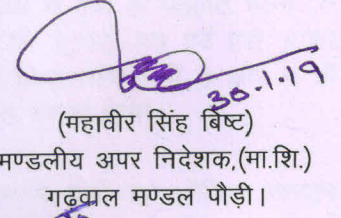 30.1.19
(महावीर सिंह बिष्ट)
मण्डलीय अपर निदेशक,(मा.शि.)
गढवाल मण्डल पौड़ी।